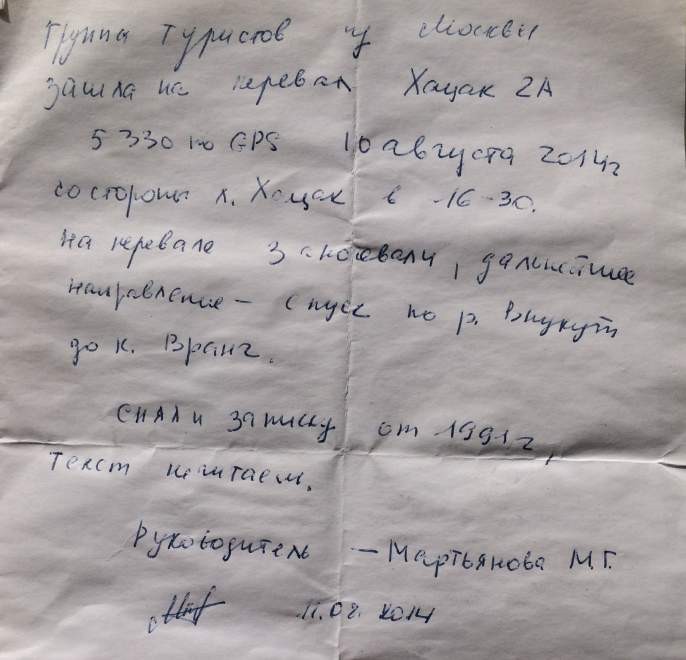 Группа туристов из Москвы
зашла на перевал Хацак 2А
5330 по GPS 10 августа 2014г
со стороны л. Хацак в 16-30.
На перевале заночевали, дальнейшее
направление - спуск по р. Внукут
до к. Вранг.
Сняли записку от 1991г,
текст нечитаем.
Руководитель - Мартьянова М.Г.
11.08.2014